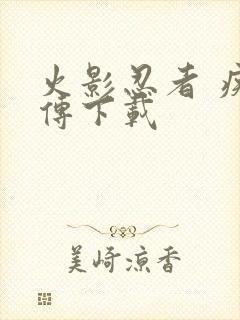 火影忍者 疾
傳下載
美崎凉香